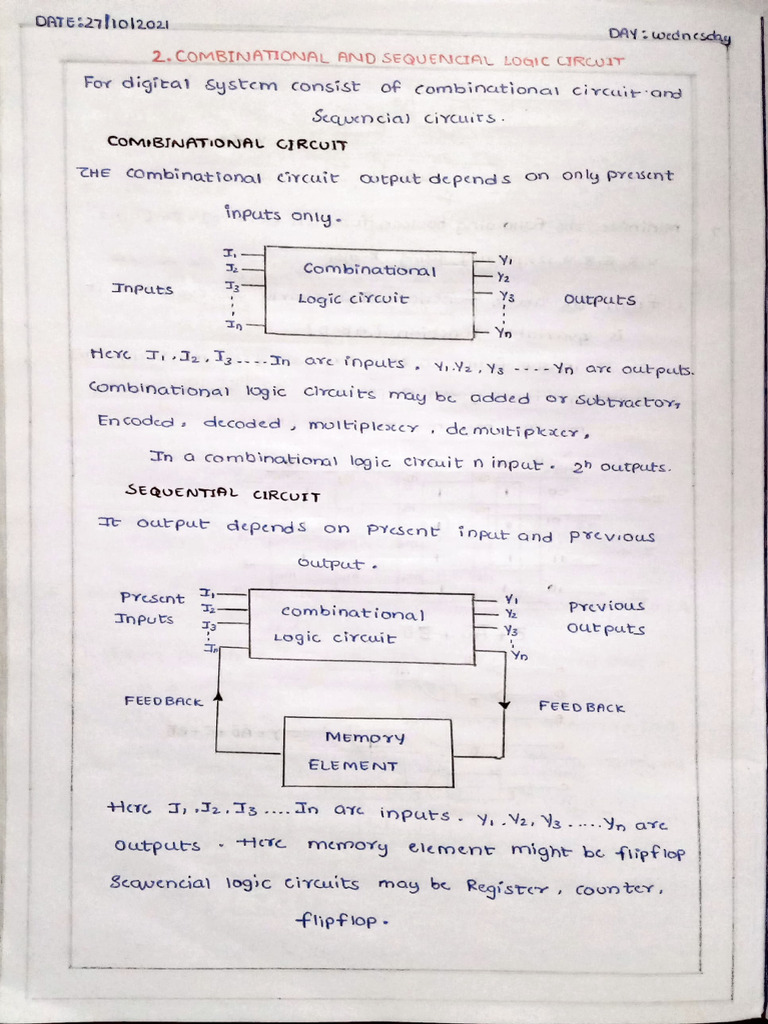 DATE:27/10/2021
DAY: Wednesday
2. COMBINATIONAL AND SEQUENCIAL LOGIC CIRCUIT
For digital System consist of combinational circuit and
Sequencial circuits.
COMBINATIONAL CIRCUIT
THE combinational circuit output depends on only present
inputs only.
I1
I2
Inputs I3
In
Combinational
Logic circuit
Y1
Y2
Y3 outputs
Yn
Here I1, I2, I3 ---- In are inputs. Y1, Y2, Y3 ---- Yn are outputs.
Combinational logic circuits may be added or subtractor,
Encoded, decoded, multiplexer, demultiplexer,
In a combinational logic circuit n input. 2n outputs.
SEQUENTIAL CIRCUIT
It output depends on present input and previous
output.
Present I1
Inputs I2
I3
In
combinational
Logic circuit
Y1 previous
Y2 outputs
Y3
Yn
FEEDBACK
FEEDBACK
MEMORY
ELEMENT
Here I1, I2, I3 .... In are inputs. Y1, Y2, Y3 ..... Yn are
outputs. Here memory element might be flipflop
Sequencial logic circuits may be Register, counter,
flipflop.